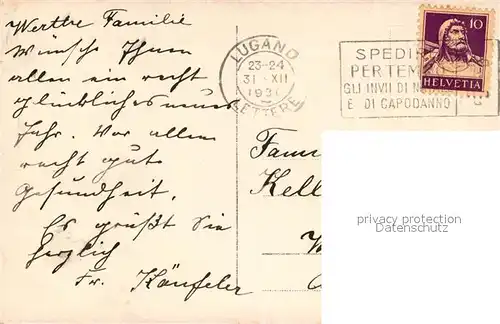 Werthe Familie
Wünsche Ihnen
allen ein recht
glückliches neues
Jahr. Vor allem
recht gute
Gesundheit.
Es grüßt Sie
herzlich
Fr. Känfeler
LUGANO
23-24
31. XII
1931
LETTERE
SPEDI
PER TEM
GLI INVII DI N
E DI CAPODANNO
10
HELVETIA
Fam
Kell
privacy protection
Datenschutz